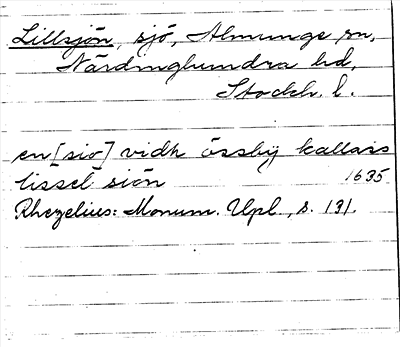 Lillsjön, sjö, Almunge sn,
Närdinghundra hd,
Stockh. l.
en [sio] vidh össby kallas
lissel siön 1635
Rhezelius: Monum. Upl., s. 131.